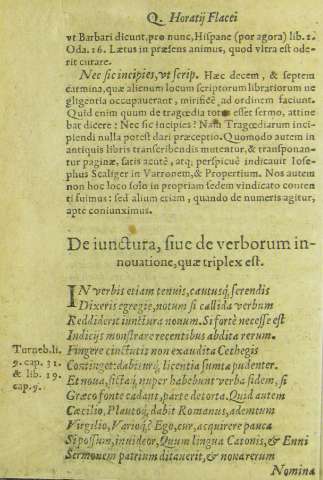 Q. Horatij Flacci
vt Barbari dicunt, pro nunc, Hispane (por agora) lib. 2.
Oda. 16. Lætus in præsens animus, quod vltra est ode-
rit curare.
Nec sic incipies, vt scrip. Hæc decem, & septem
carmina, quæ alienum locum scriptorum librariorum ne
gligentia occupauerant, mirificè, ad ordinem faciunt.
Quid enim quum de tragœdia totus esset sermo, attine
bat dicere: Nec sic incipies? Nam Tragœdiarum inci-
piendi nulla potest dari præceptio. Quomodo autem in
antiquis libris transcribendis mutentur, & transponan-
tur paginæ, satis acutè, atq; perspicuè indicauit Iose-
phus Scaliger in Varronem, & Propertium. Nos autem
non hoc loco solo in propriam sedem vindicato conten
ti fuimus: sed alium etiam, quando de numeris agitur,
apte coniunximus.
De iunctura, siue de verborum in-
nouatione, quæ triplex est.
IN verbis etiam tenuis, cautusq́; serendis
Dixeris egregie, notum si callida verbum
Reddiderit iunctura nouum. Si fortè necesse est
Indicijs monstrare recentibus abdita rerum.
Turneb. li.
9. cap. 31.
& lib. 19.
cap. 9.
Fingere cinctutis non exaudita Cethegis
Continget: dabiturq́;, licentia sumta pudenter.
Et noua, fictaq́;, nuper habebunt verba fidem, si
Græco fonte cadant, parte detorta. Quid autem
Cæcilio, Plautoq́;, dabit Romanus, ademtum
Virgilio, Varioq́;? Ego, cur, acquirere pauca
Si possum, inuideor, Quum lingua Catonis, & Enni
Sermonem patrium ditauerit, & nouarerum
Nomina